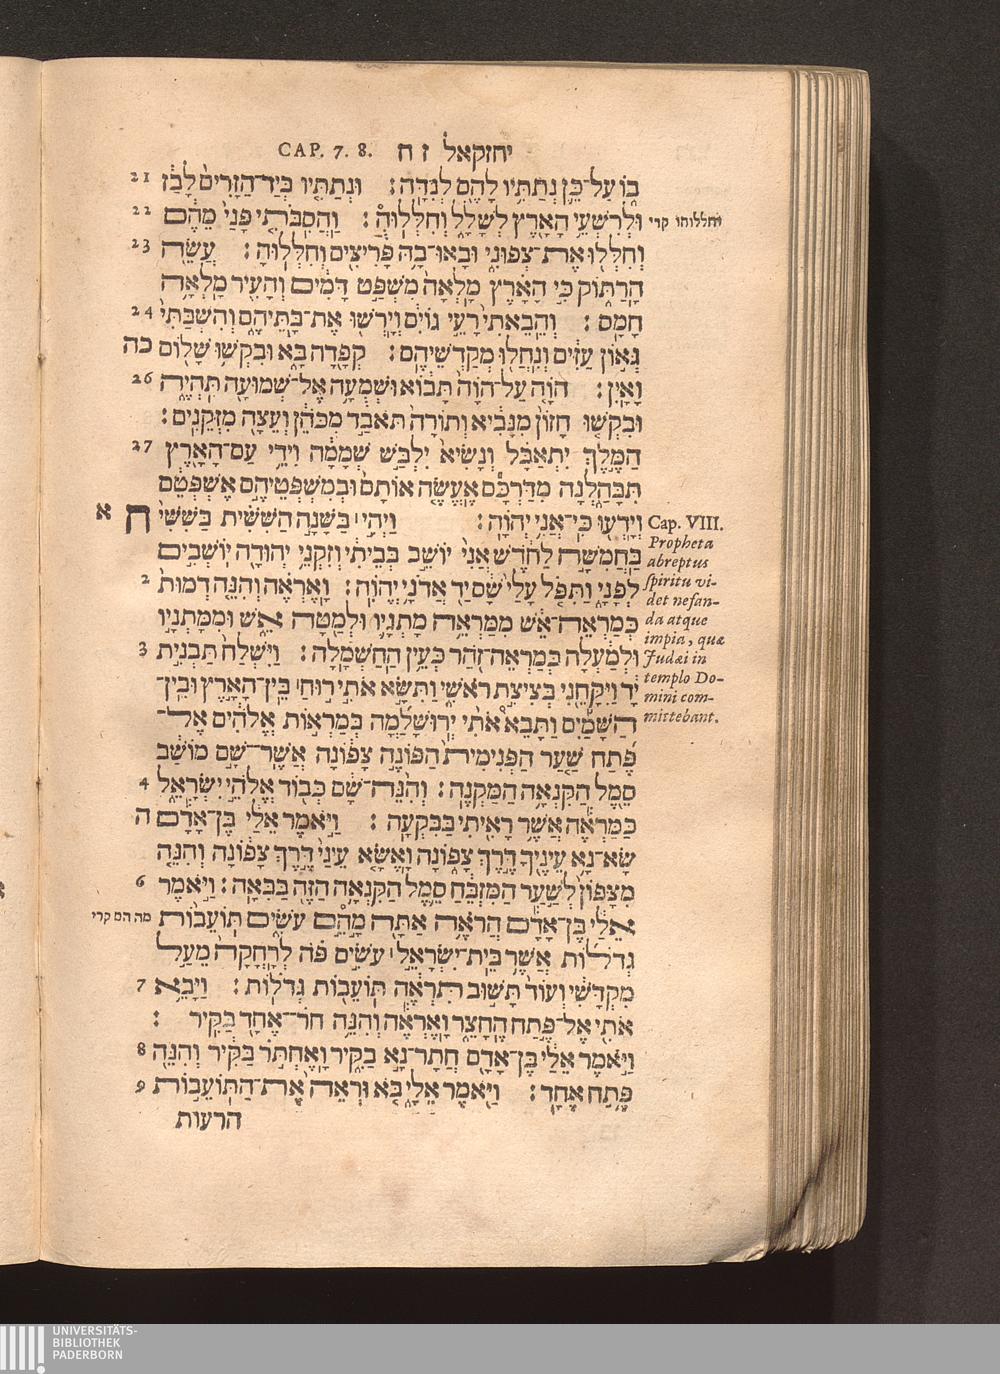 CAP. 7. 8. יחזקאל ז ח
21 בו על־כן נתתיו להם לנדה׃ ונתתיו ביד־הזרים לבז
22 ולרשעי הארץ לשלל וחללוה׃ והסבתי פני מהם
וחללוהו קרי
23 וחללו את־צפוני ובאו־בה פריצים וחללוה׃ עשה
הרתוק כי הארץ מלאה משפט דמים והעיר מלאה
24 חמס׃ והבאתי רעי גוים וירשו את־בתיהם והשבתי
כה גאון עזים ונחלו מקדשיהם׃ קפדה בא ובקשו שלום
26 ואין׃ הוה על־הוה תבוא ושמעה אל־שמועה תהיה
ובקשו חזון מנביא ותורה תאבד מכהן ועצה מזקנים׃
27 המלך יתאבל ונשיא ילבש שממה וידי עם־הארץ
תבהלנה מדרכם אעשה אותם ובמשפטיהם אשפטם
ח א וידעו כי־אני יהוה׃ ויהי בשנה הששית בששי
בחמשה לחדש אני יושב בביתי וזקני יהודה יושבים
2 לפני ותפל עלי שם יד אדני יהוה׃ ואראה והנה דמות
כמראה־אש ממראה מתניו ולמטה אש וממתניו
3 ולמעלה כמראה־זהר כעין החשמלה׃ וישלח תבנית
יד ויקחני בציצת ראשי ותשא אתי רוח בין־הארץ ובין־
השמים ותבא אתי ירושלמה במראות אלהים אל־
פתח שער הפנימית הפונה צפונה אשר־שם מושב
4 סמל הקנאה המקנה׃ והנה־שם כבוד אלהי ישראל
ה כמראה אשר ראיתי בבקעה׃ ויאמר אלי בן־אדם
שא־נא עיניך דרך צפונה ואשא עיני דרך צפונה והנה
6 מצפון לשער המזבח סמל הקנאה הזה בבאה׃ ויאמר
אלי בן־אדם הראה אתה מהם עשים תועבות
מה הם קרי
גדלות אשר בית־ישראל עשים פה לרחקה מעל
7 מקדשי ועוד תשוב תראה תועבות גדלות׃ ויבא
אתי אל־פתח החצר ואראה והנה חר־אחד בקיר׃
8 ויאמר אלי בן־אדם חתר־נא בקיר ואחתר בקיר והנה
9 פתח אחד׃ ויאמר אלי בא וראה את־התועבות
הרעות
Cap. VIII.
Propheta
abreptus
spiritu vi-
det nefan-
da atque
impia, quæ
Judæi in
templo Do-
mini com-
mittebant.
UNIVERSITÄTS-
BIBLIOTHEK
PADERBORN